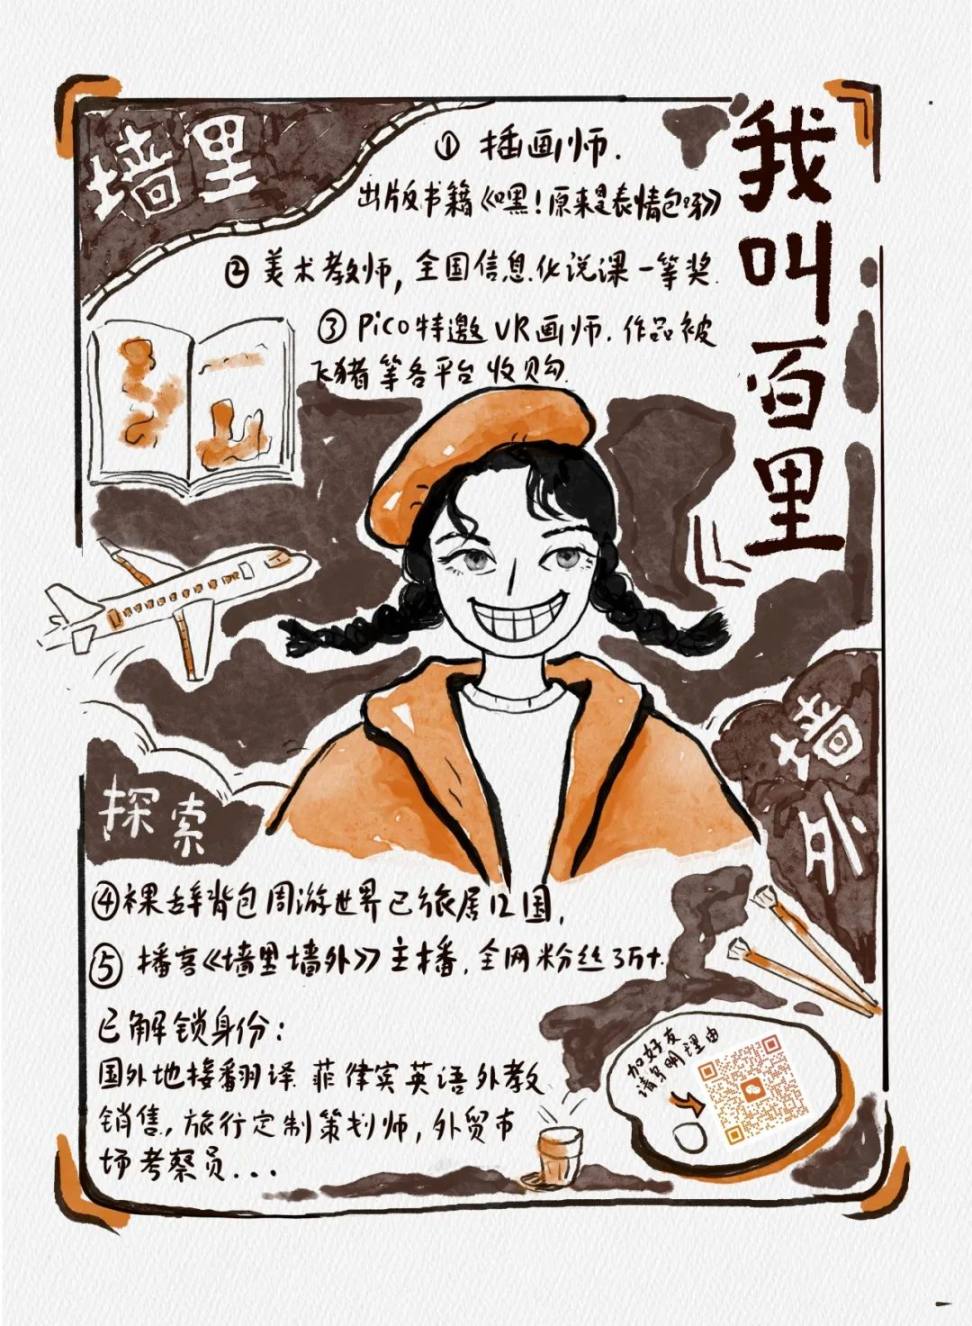 我叫百里
墙里
① 插画师.
出版书籍《嘿!原来是表情包呀》
② 美术教师, 全国信息化说课一等奖.
③ Pico特邀VR画师. 作品被
飞猪等各平台收购.
墙外
探索
④裸辞背包周游世界已旅居12国,
⑤ 播客《墙里墙外》主播, 全网粉丝3万+.
已解锁身份:
国外地接翻译 菲律宾英语外教
销售, 旅行定制策划师, 外贸市
场考察员...
加好友
请写明理由